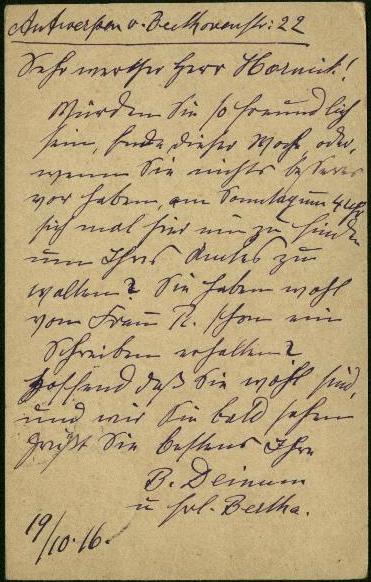 Antwerpen v. Beethovenstr: 22
Sehr werther Herr Hornick!
Würden Sie so freundlich
sein, Ende dieser Woche oder,
wenn Sie nichts besseres
vor haben, am Sonntag um 4 Uhr
sich mal hier ein zu finden
um Ihres Amtes zu
walten? Sie haben wohl
von Frau R. schon ein
Schreiben erhalten?
Hoffend daß Sie wohl sind,
und wir Sie bald sehen
grüßt Sie bestens Ihre
B. Deinum
u Frl. Bertha.
19/10.16.